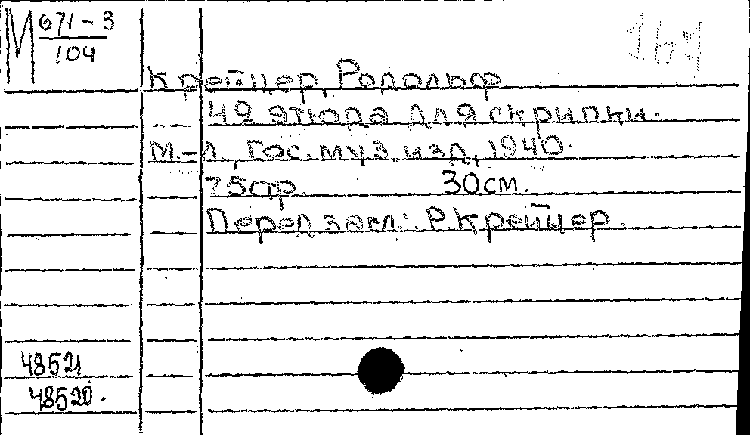 М 671-3
104
Крейцер, Родольф
42 этюда для скрипки.
М.-Л., Гос. муз. изд., 1940.
75стр. 30см.
Перед загл.: Р. Крейцер.
48521
48520.